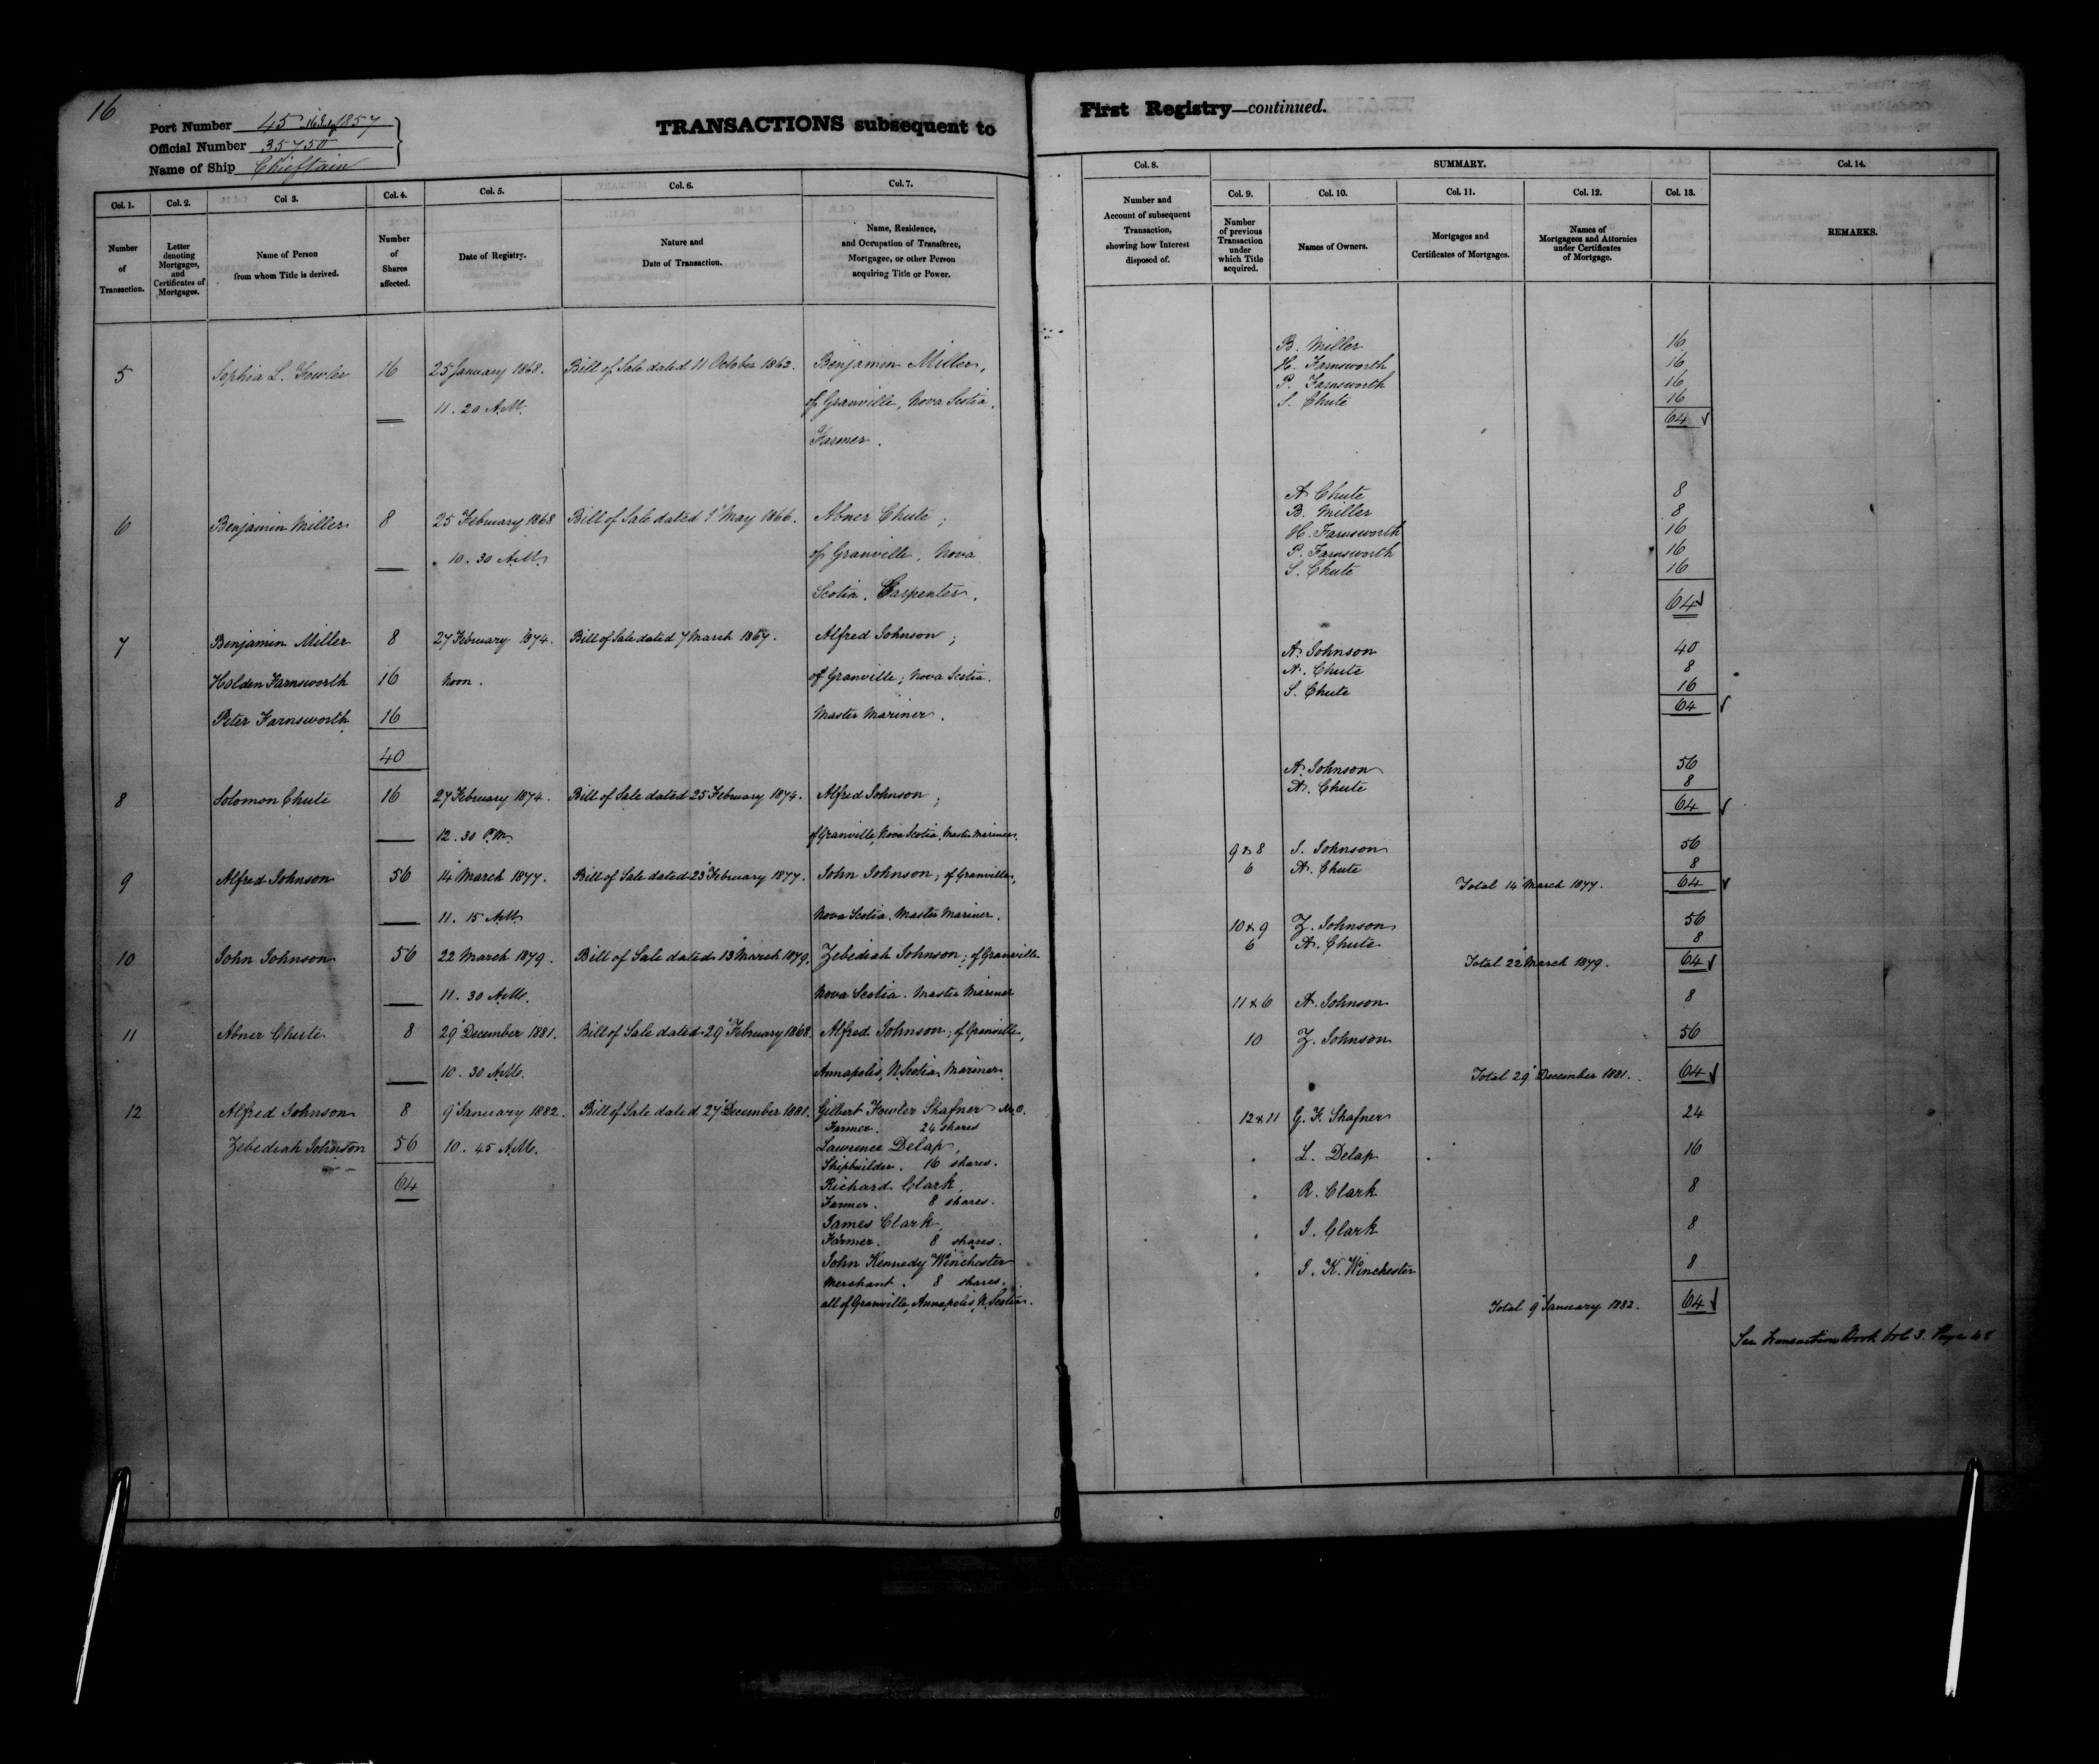 16
Port Number 45 1857
Official Number 35750
Name of Ship Chieftain
TRANSACTIONS subsequent to
Col. 1. Col. 2. Col 3. Col. 4. Col. 5. Col. 6. Col. 7.
Number of Transaction.
Letter denoting Mortgages, and Certificates of Mortgages.
Name of Person from whom Title is derived.
Number of Shares affected.
Date of Registry.
Nature and Date of Transaction.
Name, Residence, and Occupation of Transferee, Mortgagee, or other Person acquiring Title or Power.
5 Sophia L. Fowler 16 25 January 1868. Bill of Sale dated 11 October 1862. Benjamin Miller,
11. 20 A.M. of Granville, Nova Scotia.
Farmer.
6 Benjamin Miller 8 25 February 1868 Bill of Sale dated 1 May 1866. Abner Chute;
10. 30 A.M. of Granville, Nova
Scotia. Carpenter.
7 Benjamin Miller 8 27 February 1874. Bill of Sale dated 7 March 1867. Alfred Johnson;
Holden Farnsworth 16 Noon. of Granville; Nova Scotia.
Peter Farnsworth 16 Master Mariner.
40
8 Solomon Chute 16 27 February 1874. Bill of Sale dated 25 February 1874. Alfred Johnson;
12. 30 P.M. of Granville, Nova Scotia, Master Mariner.
9 Alfred Johnson 56 14 March 1877. Bill of Sale dated 23 February 1877. John Johnson; of Granville,
11. 15 A.M. Nova Scotia. Master Mariner.
10 John Johnson 56 22 March 1879. Bill of Sale dated 13 March 1879. Zebediah Johnson; of Granville
11. 30 A.M. Nova Scotia. Master Mariner
11 Abner Chute 8 29 December 1881. Bill of Sale dated 29 February 1868. Alfred Johnson; of Granville,
10. 30 A.M. Annapolis, N. Scotia, Mariner.
12 Alfred Johnson 8 9 January 1882. Bill of Sale dated 27 December 1881. Gilbert Fowler Shafner M.O.
Farmer. 24 shares
Zebediah Johnson 56 10. 45 A.M. Lawrence Delap,
Shipbuilder. 16 shares.
64 Richard Clark,
Farmer. 8 shares.
James Clark,
Farmer. 8 shares.
John Kennedy Winchester
Merchant. 8 shares.
all of Granville, Annapolis, N. Scotia.
First Registry—continued.
Col. 8. SUMMARY. Col. 14.
Col. 9. Col. 10. Col. 11. Col. 12. Col. 13.
Number and Account of subsequent Transaction, showing how Interest disposed of.
Number of previous Transaction under which Title acquired.
Names of Owners.
Mortgages and Certificates of Mortgages.
Names of Mortgagees and Attornies under Certificates of Mortgage.
REMARKS.
B. Miller 16
H. Farnsworth 16
P. Farnsworth 16
S. Chute 16
64 ✓
A. Chute 8
B. Miller 8
H. Farnsworth 16
P. Farnsworth 16
S. Chute 16
64 ✓
A. Johnson 40
A. Chute 8
S. Chute 16
64 ✓
A. Johnson 56
A. Chute 8
64 ✓
9 & 8 J. Johnson 56
6 A. Chute 8
Total 14 March 1877. 64 ✓
10 & 9 Z. Johnson 56
6 A. Chute 8
Total 22 March 1879. 64 ✓
11 & 6 A. Johnson 8
10 Z. Johnson 56
Total 29 December 1881. 64 ✓
12 & 11 G. F. Shafner 24
L. Delap 16
R. Clark 8
J. Clark 8
J. K. Winchester 8
Total 9 January 1882. 64 ✓
See Transaction Book Vol 3. Page 48